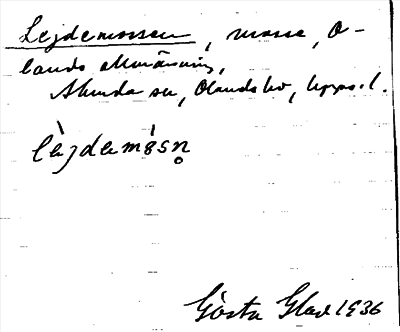 Lejdemossen, mosse, O-
lands allmänning,
Alunda sn, Olands hd, Upps. l.
lèjdemǻsn̥
Gösta Glad 1936